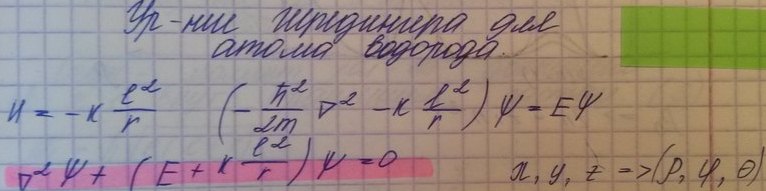 Ур-ние Шредингера для
атома водорода.
U = -k e²/r (-ħ²/2m ∇² - k e²/r) Ψ = EΨ
∇²Ψ + (E + k e²/r) Ψ = 0 x, y, z => (ρ, φ, θ)